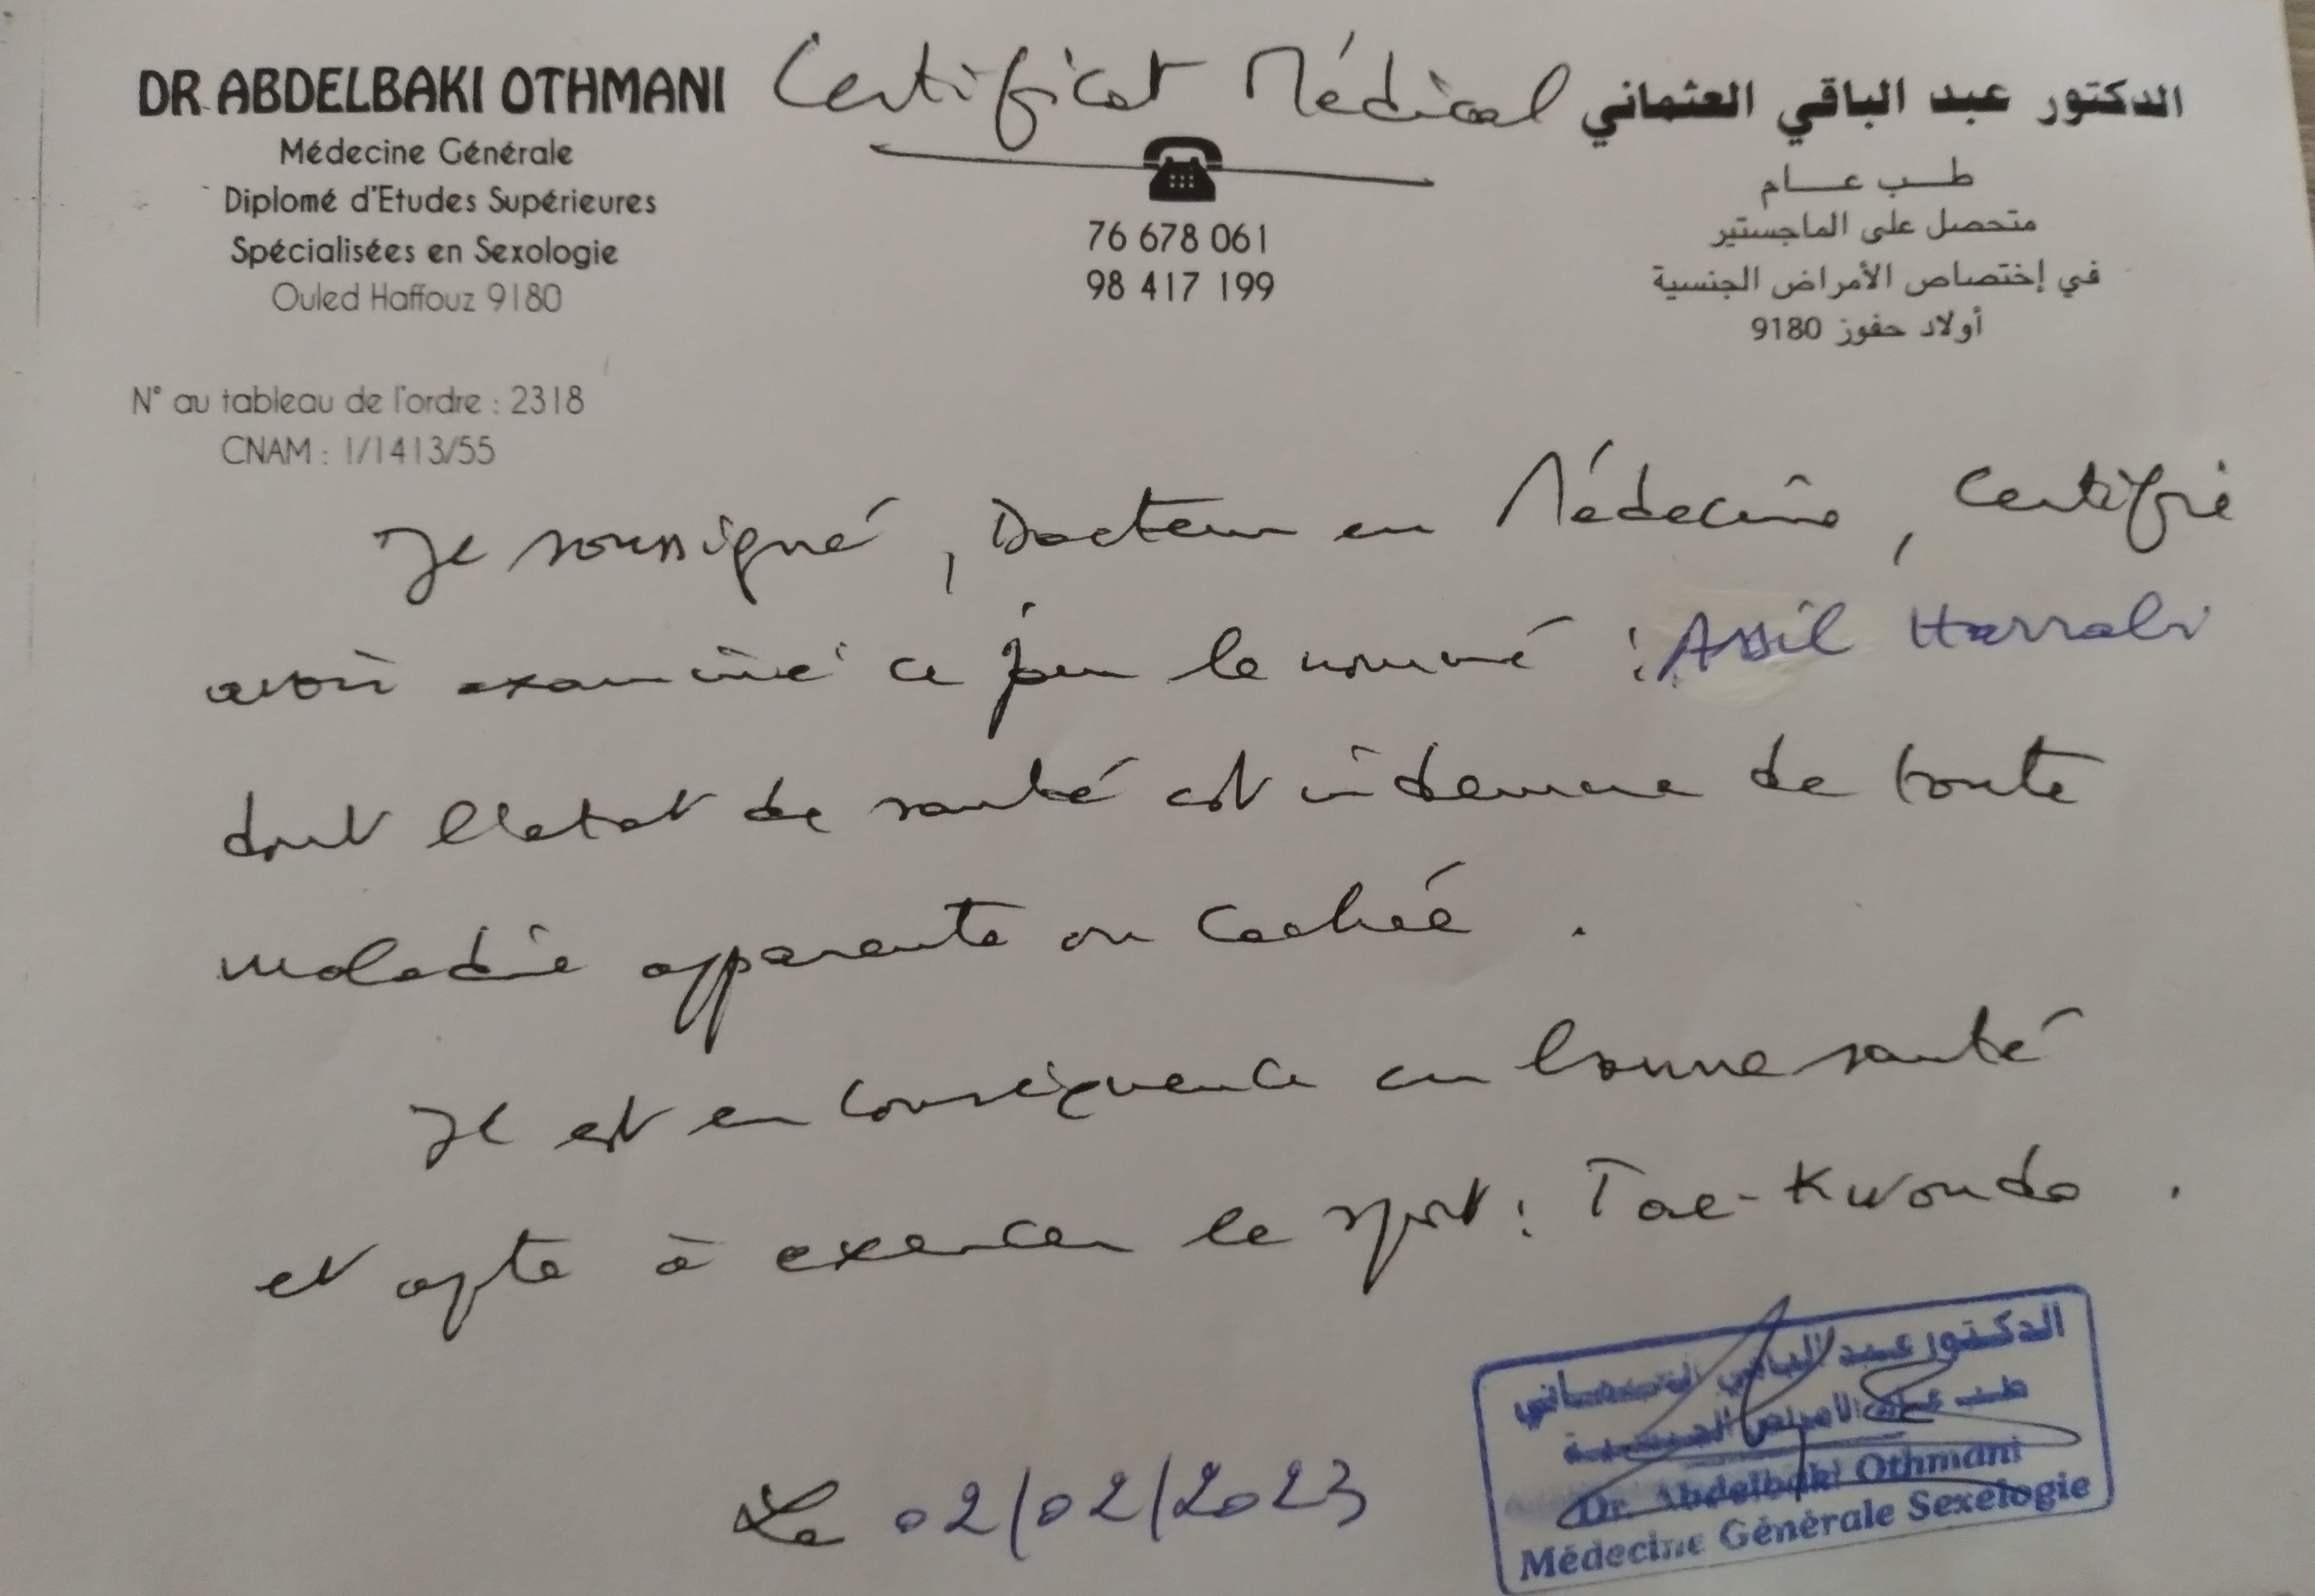 DR ABDELBAKI OTHMANI
Médecine Générale
Diplomé d'Etudes Supérieures
Spécialisées en Sexologie
Ouled Haffouz 9180
N° au tableau de l'ordre : 2318
CNAM : 1/1413/55
Certificat Médical
76 678 061
98 417 199
الدكتور عبد الباقي العثماني
طب عام
متحصل على الماجستير
في إختصاص الأمراض الجنسية
أولاد حفوز 9180
Je soussigné, Docteur en Médecine, Certifie
avoir examiné ce jour le nommé : Assil Harrabi
dont l'etat de santé est indemne de toute
maladie apparente ou cachée .
Il est en conséquence en bonne santé
et apte à exercer le sport : Tae-Kwondo .
Le 02/02/2023
الدكتور عبد الباقي العثماني
طب عام الأمراض الجنسية
Dr. Abdelbaki Othmani
Médecine Générale Sexelogie